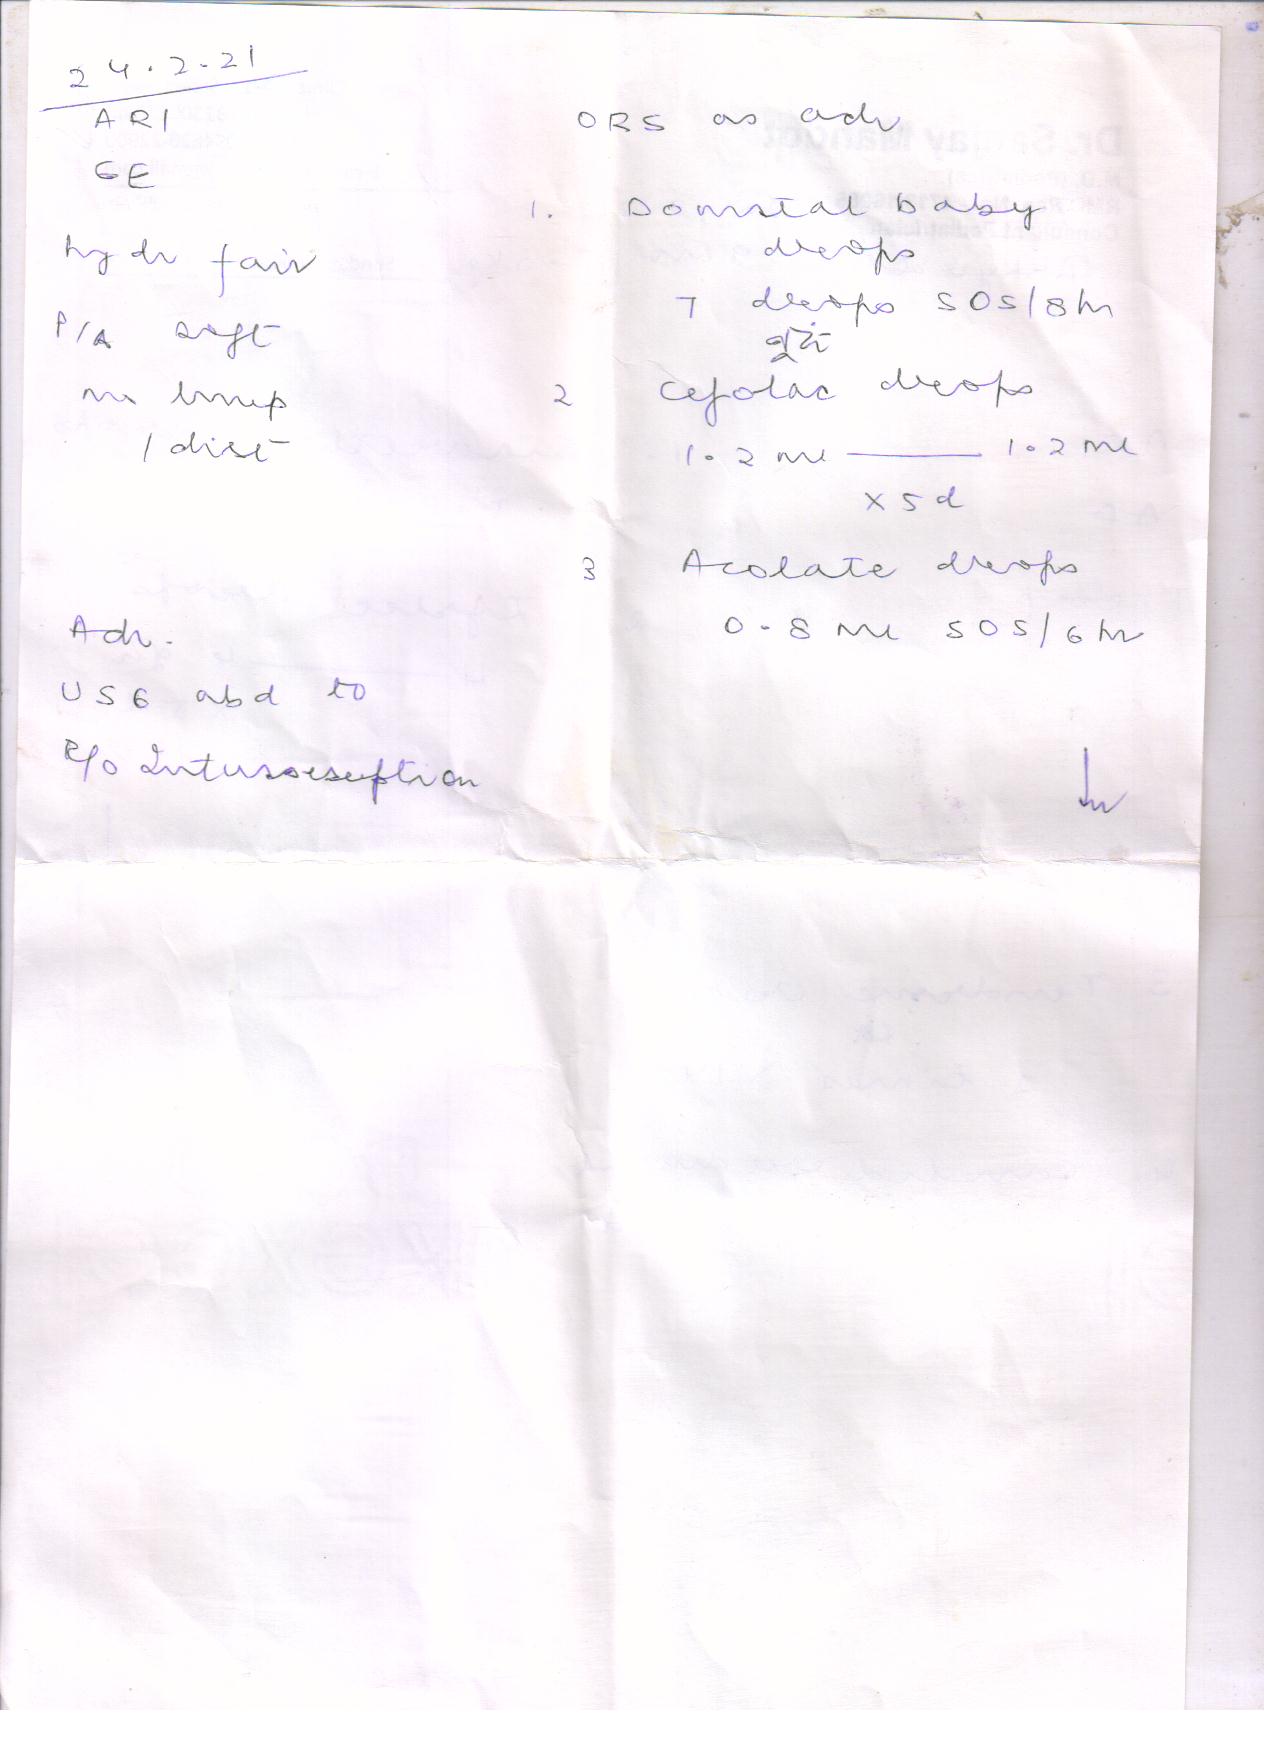 24.2.21
ARI
GE
hydr fair
P/A soft
no lump
/ dist
Adv.
USG abd to
R/o Intussesseption
ORS as adv
1. Domstal baby
drops
7 drops SOS/8hr
2 Cefolac drops
1.2 ml —— 1.2 ml
x 5d
3 Acolate drops
0.8 ml SOS/6hr